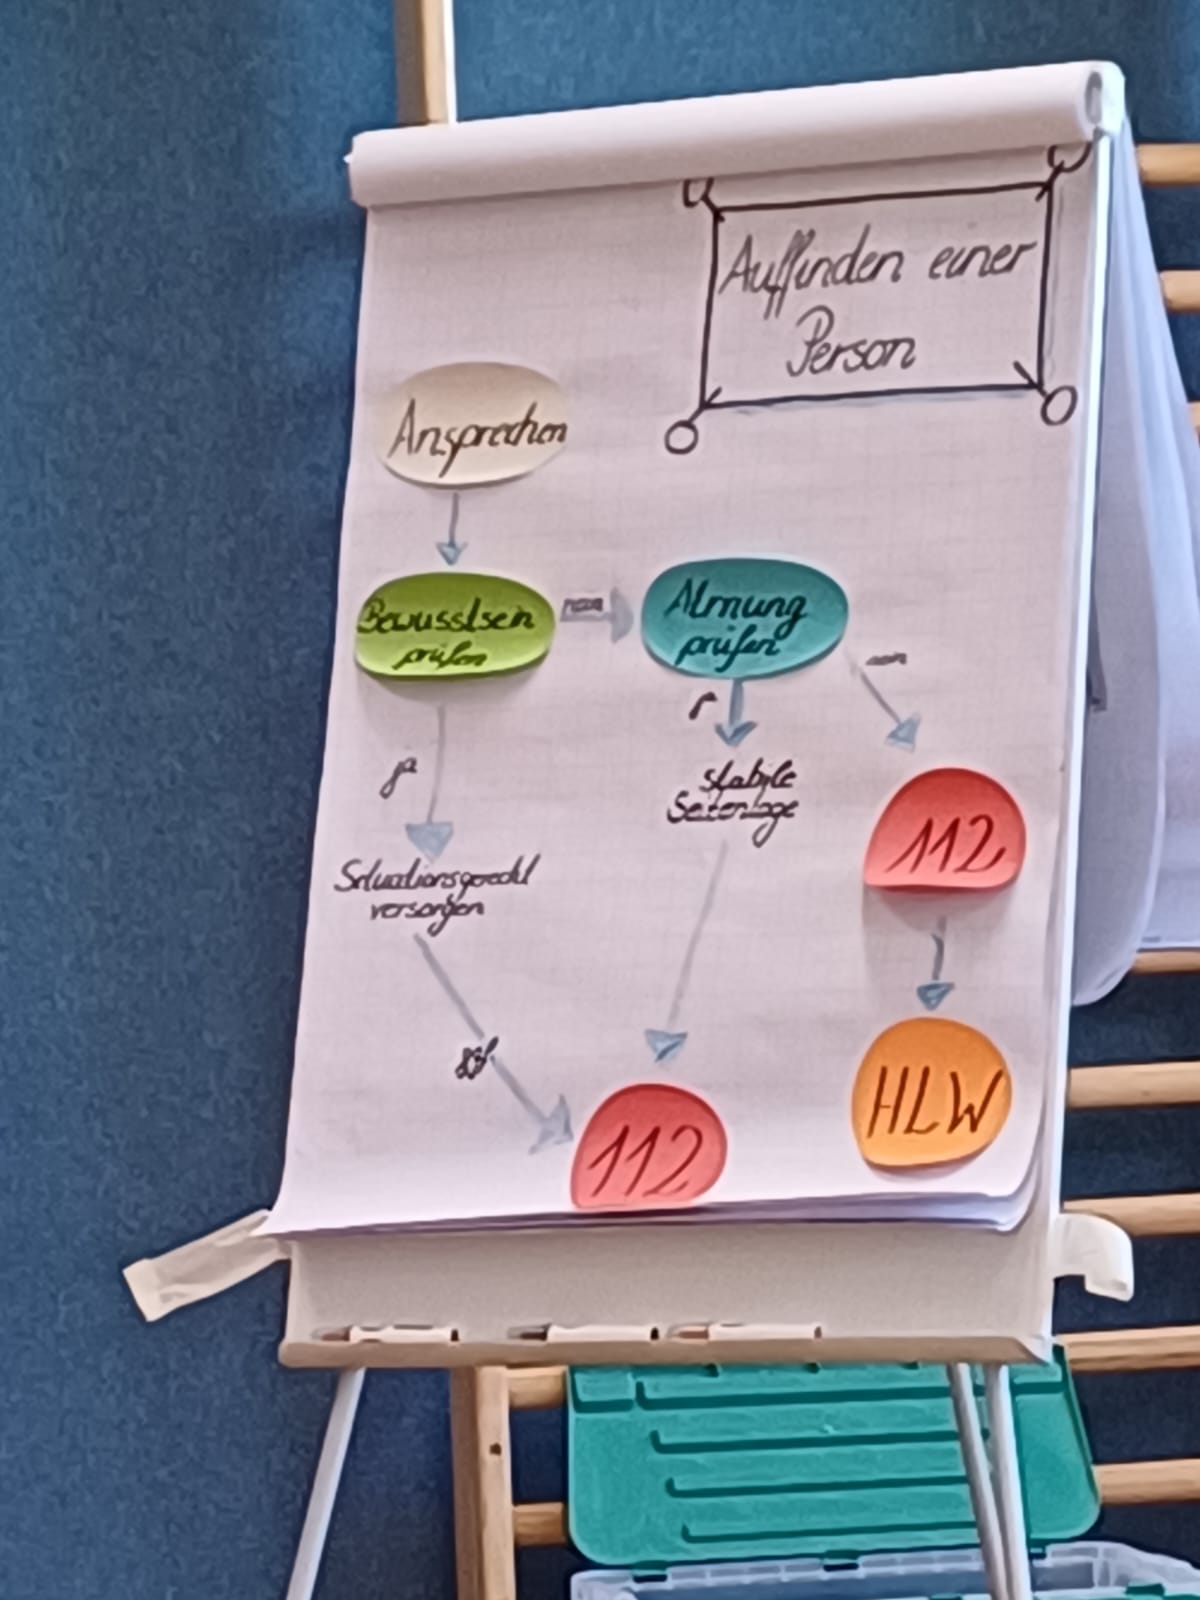 Auffinden einer
Person
Ansprechen
Bewusstsein
prüfen
nein
Atmung
prüfen
nein
ja
stabile
Seitenlage
112
Situationsgerecht
versorgen
HLW
112